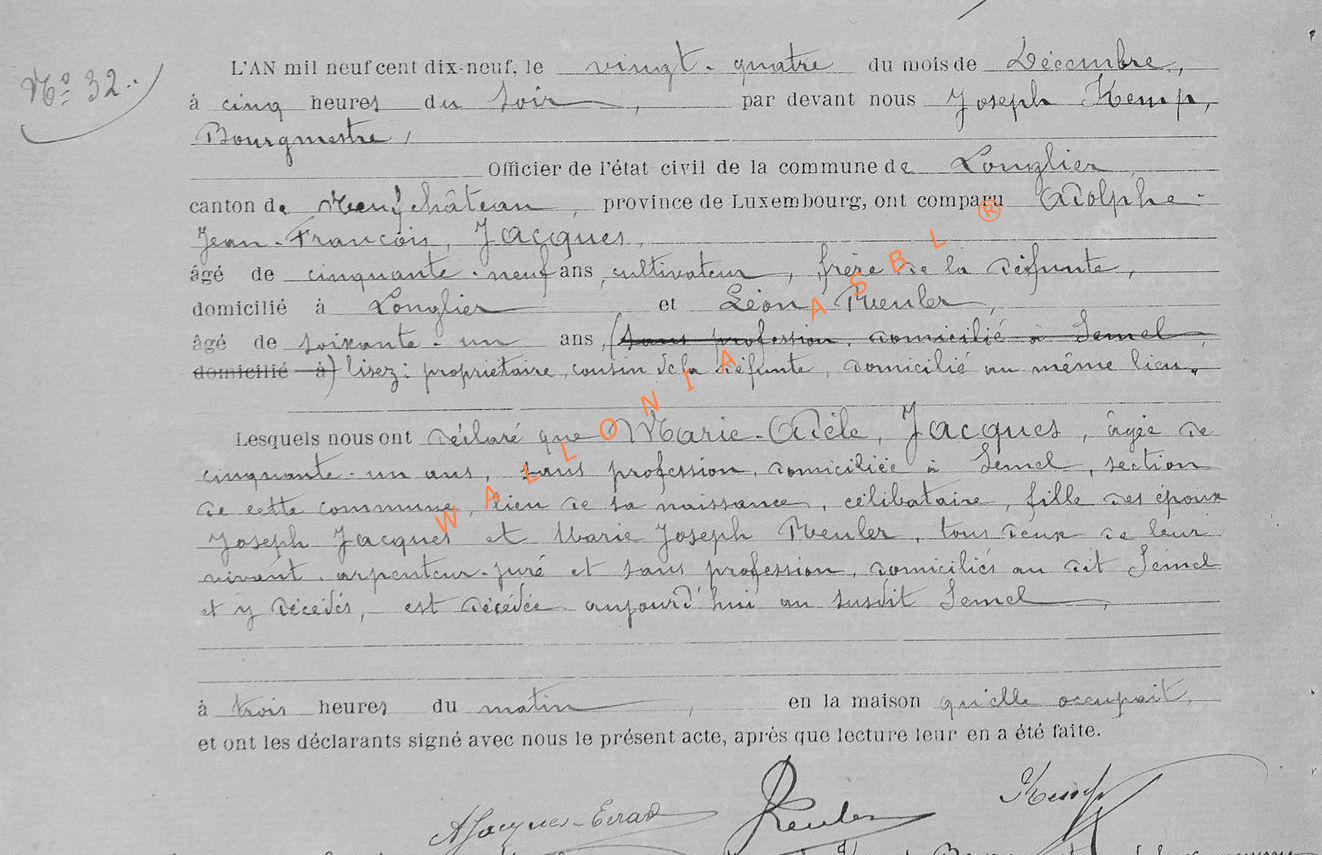 Nº 32.
L'AN mil neuf cent dix-neuf, le vingt-quatre du mois de Décembre,
à cinq heures du soir, par devant nous Joseph Kemp,
Bourgmestre,
Officier de l'état-civil de la commune de Longlier,
canton de Neufchâteau, province de Luxembourg, ont comparu Adolphe-
Jean-François, Jacques,
âgé de cinquante-neuf ans, cultivateur, frère de la défunte,
domicilié à Longlier et Léon Meuler,
âgé de soixante-un ans, (sans profession, domicilié à Semel,
domicilié à) lisez: propriétaire, cousin de la défunte, domicilié au même lieu.
Lesquels nous ont déclaré que Marie-Adèle, Jacques, âgée de
cinquante-un ans, sans profession, domiciliée à Semel, section
de cette commune, lieu de sa naissance, célibataire, fille des époux
Joseph Jacques et Marie Joseph Meuler, tous deux de leur
vivant, arpenteur-juré et sans profession, domiciliés au dit Semel
et y décédés, est décédée aujourd'hui au susdit Semel,
à trois heures du matin, en la maison qu'elle occupait,
et ont les déclarants signé avec nous le présent acte, après que lecture leur en a été faite.
AJacques-Evrad Kemp
WALLONIA ASBL ®